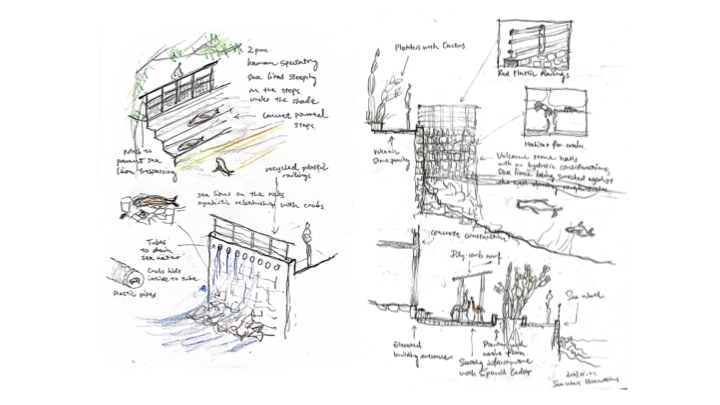 2pm
human spectating
sea lions sleeping
on the steps
under the shade
concrete poured
steps
prevent sea
lion trespassing
recycled plastic
railings
sea lions on the rocks
symbiotic relationship with crabs
Tubes
to drain
sea water
Crabs hide
inside the tube
Plastic pipes
Planters with Cactus
Red Plastic Railings
Habitat for crabs
Volcanic
Stone paving
Volcanic stone walls
with no hydraulic considerations,
sea lions being smashed against
the
concrete
Poly-carb roof
Sea wall
Elevated
building entrance
Planter with
native
Seating
with
Sea wall Observations